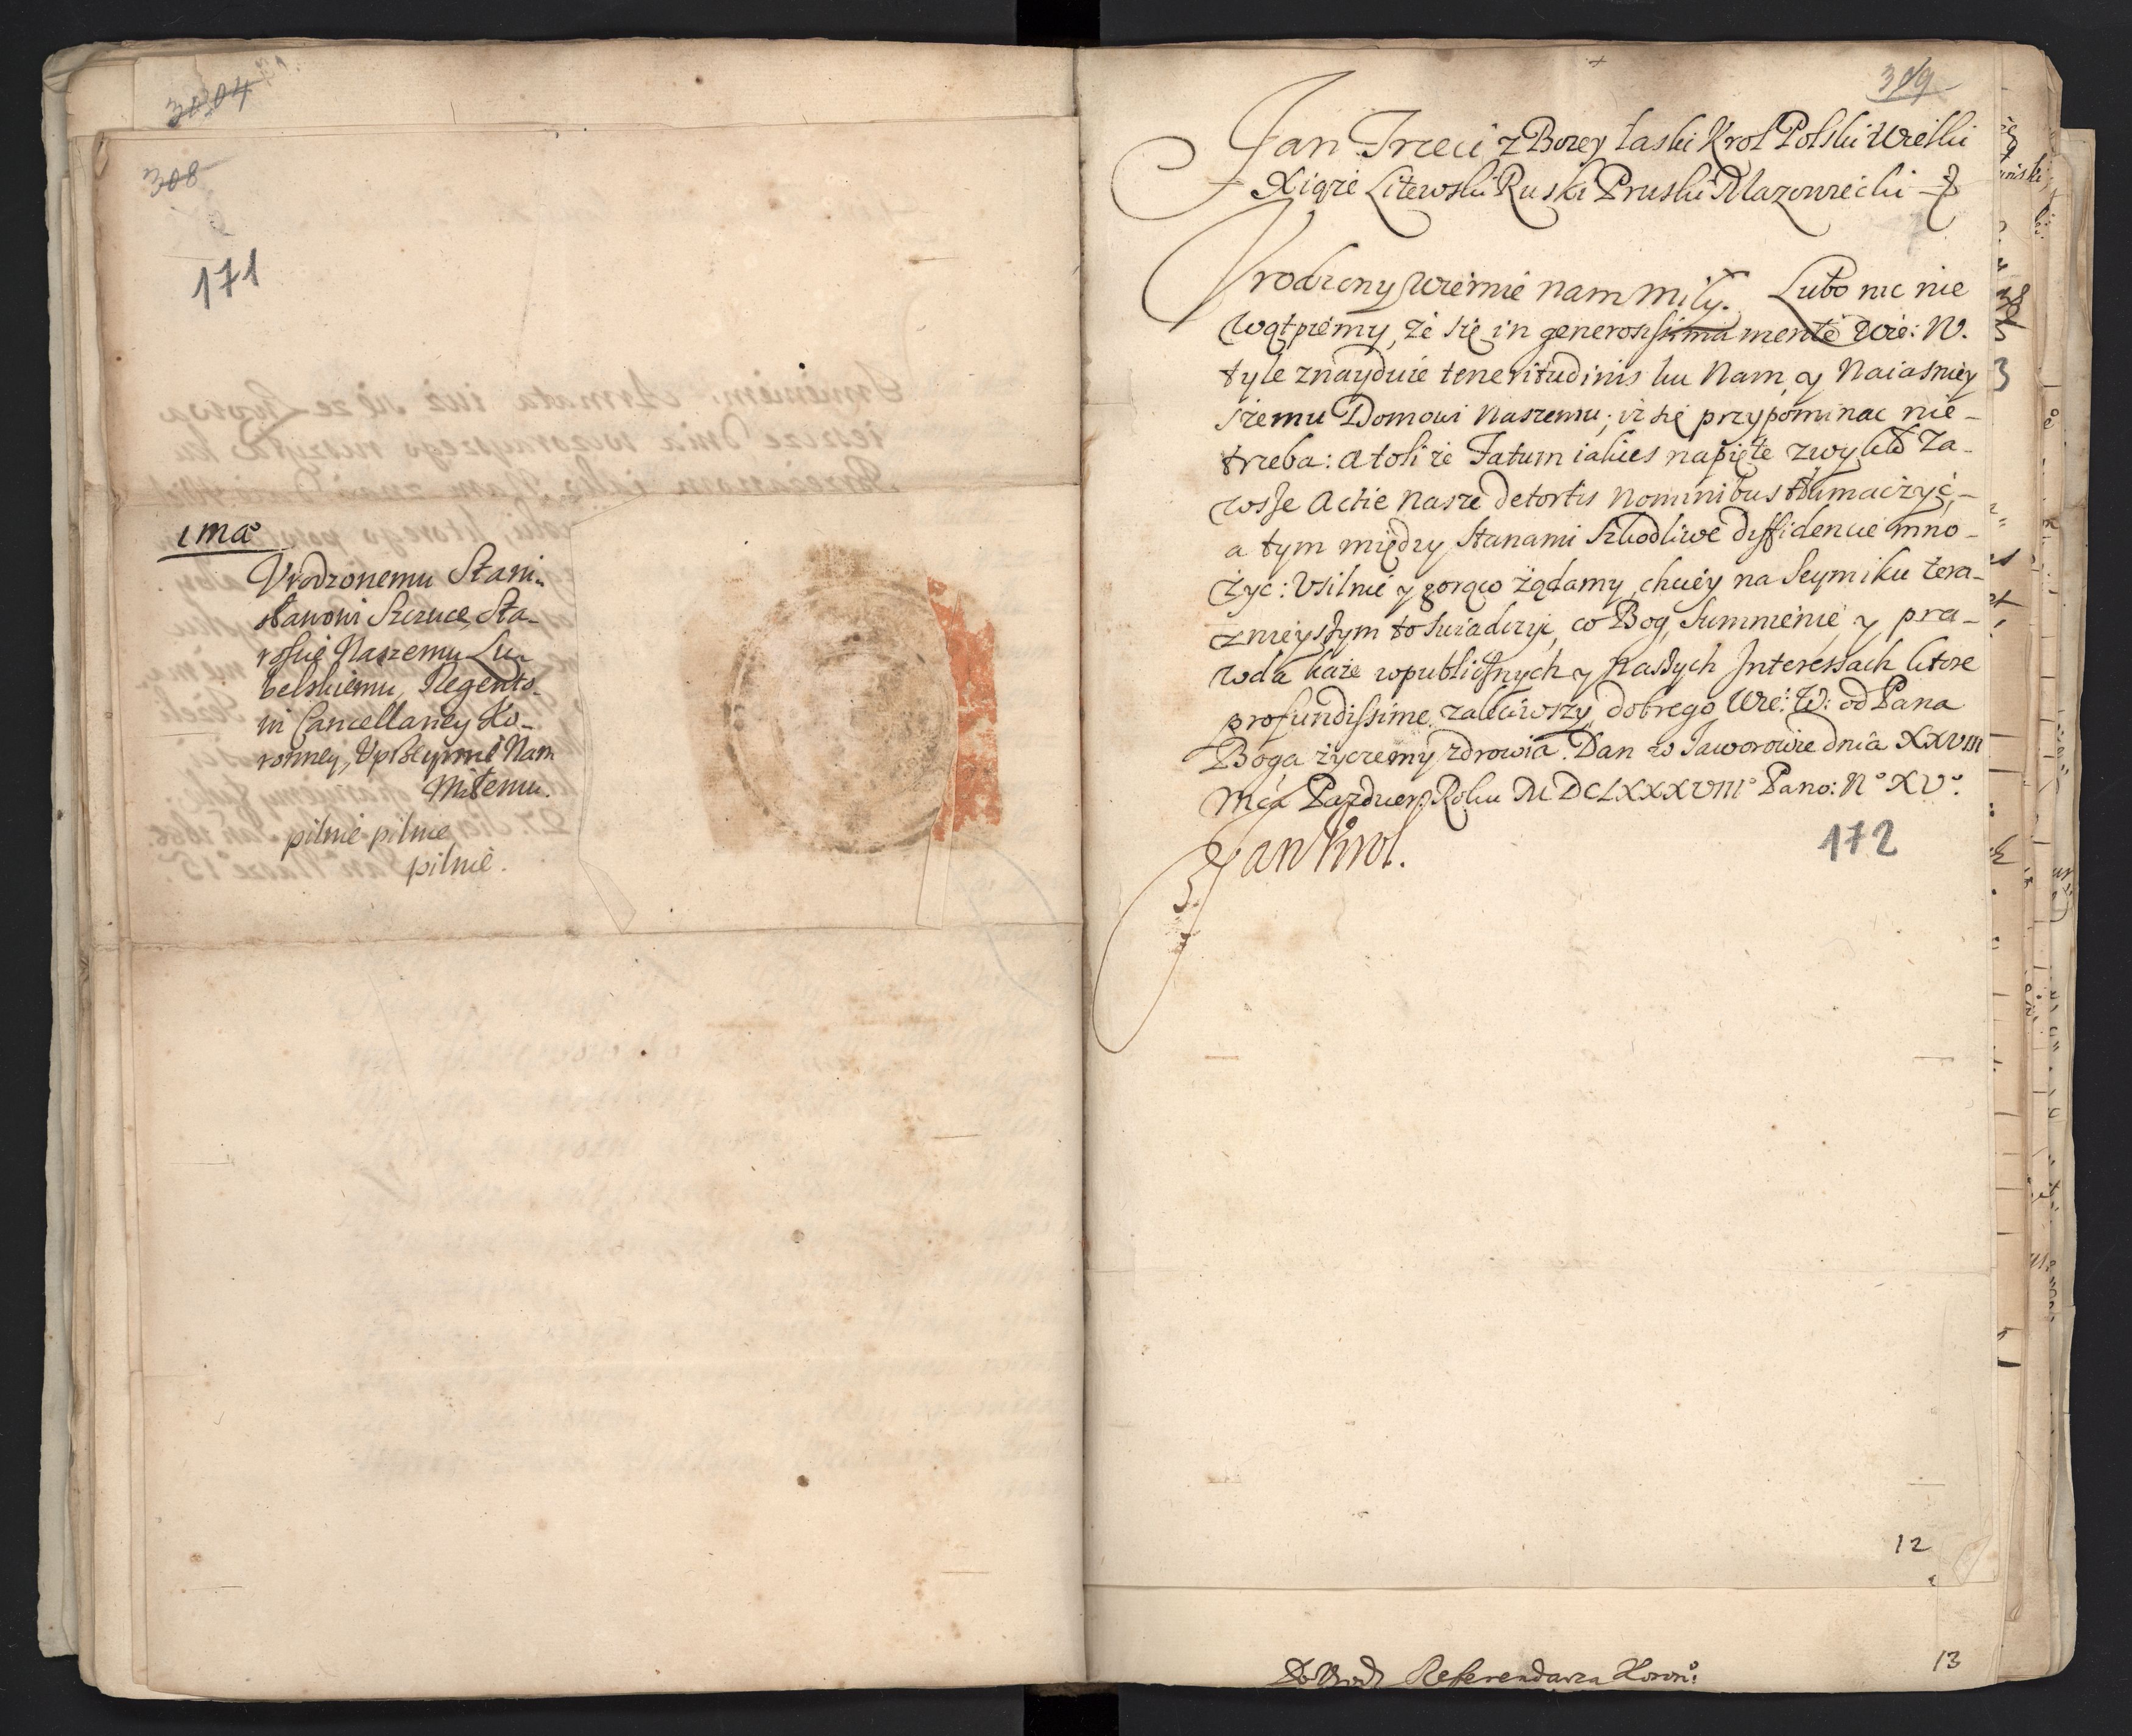 308
171
1ma
Vrodzonemu Stani-
sławowi Szczuce, Sta-
roscie Naszemu Lu-
belskiemu, Regento-
wi Cancellariey Ko-
ronney, Vprzeymie Nam
Miłemu.
pilnie pilnie
pilnie.
Jan Trzeci z Bozey łaski Krol Polski Wielki
Xiąże Litewski Ruski Pruski Mazowiecki
Vrodzony wiernie nam miły. Lubo nic nie
wątpiemy, że się in generosissima mente Wie: W.
tyle znayduie teneritudinis ku Nam, y Naiasniey
szemu Domowi Naszemu, iż się przypominac nie-
trzeba: a toli że Fatum iakies napięte zwykło za-
wsze Actie Nasze detortis Nominibus tłumaczyć,-
a tym między Stanami szkodliwe diffidencie mno-
żyć: Vsilnie y gorąco żądamy, chciey na Seymiku tera-
znieyszym to swiadczyć, co Bog, Summienie, y pra-
wda każe w publicznych y Naszych Interessach ktore
profundissime zaleciwszy, dobrego Wie: W: od Pana
Boga życzemy zdrowia. Dan w Jaworowie dnia XXVIII
Mca Pazdzier: Roku MDCLXXXVIII° Pano: N° XV°
Jan Krol.
172
12
13
Referendarza Koron: